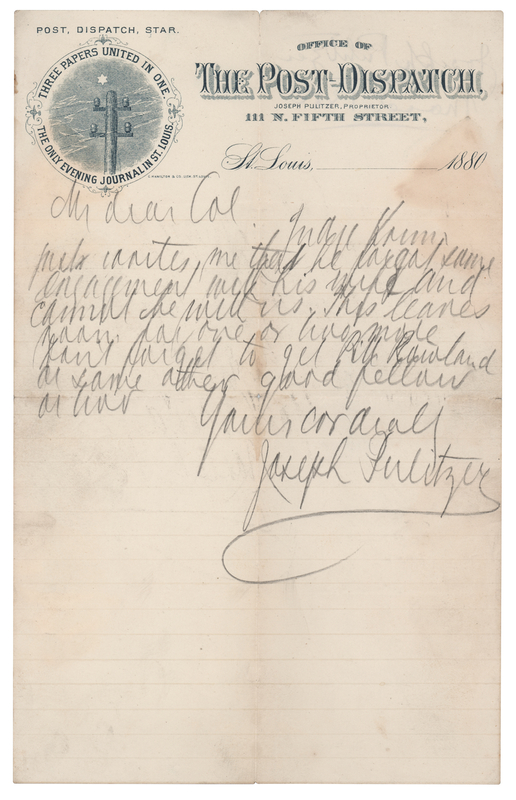 POST, DISPATCH, STAR.
THREE PAPERS UNITED IN ONE.
THE ONLY EVENING JOURNAL IN ST. LOUIS.
OFFICE OF
THE POST-DISPATCH,
JOSEPH PULITZER, PROPRIETOR
111 N. FIFTH STREET,
St. Louis, 1880
My dear Col
Judge
writes me that he forgot some
engagement with his wife and
cannot be with us. This leaves
room for one or two more
Dont forget to get Rowland
or some other good fellow
or two
Yours cordially
Joseph Pulitzer